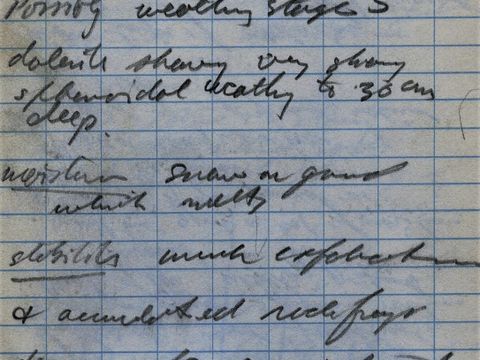 Possibly weathering stage 3
dolerite showing very strong
spheroidal weathg to 30 cm
deep.
moisture snow on ground
which melts
stability much exfoliation
& accumulated rock frags